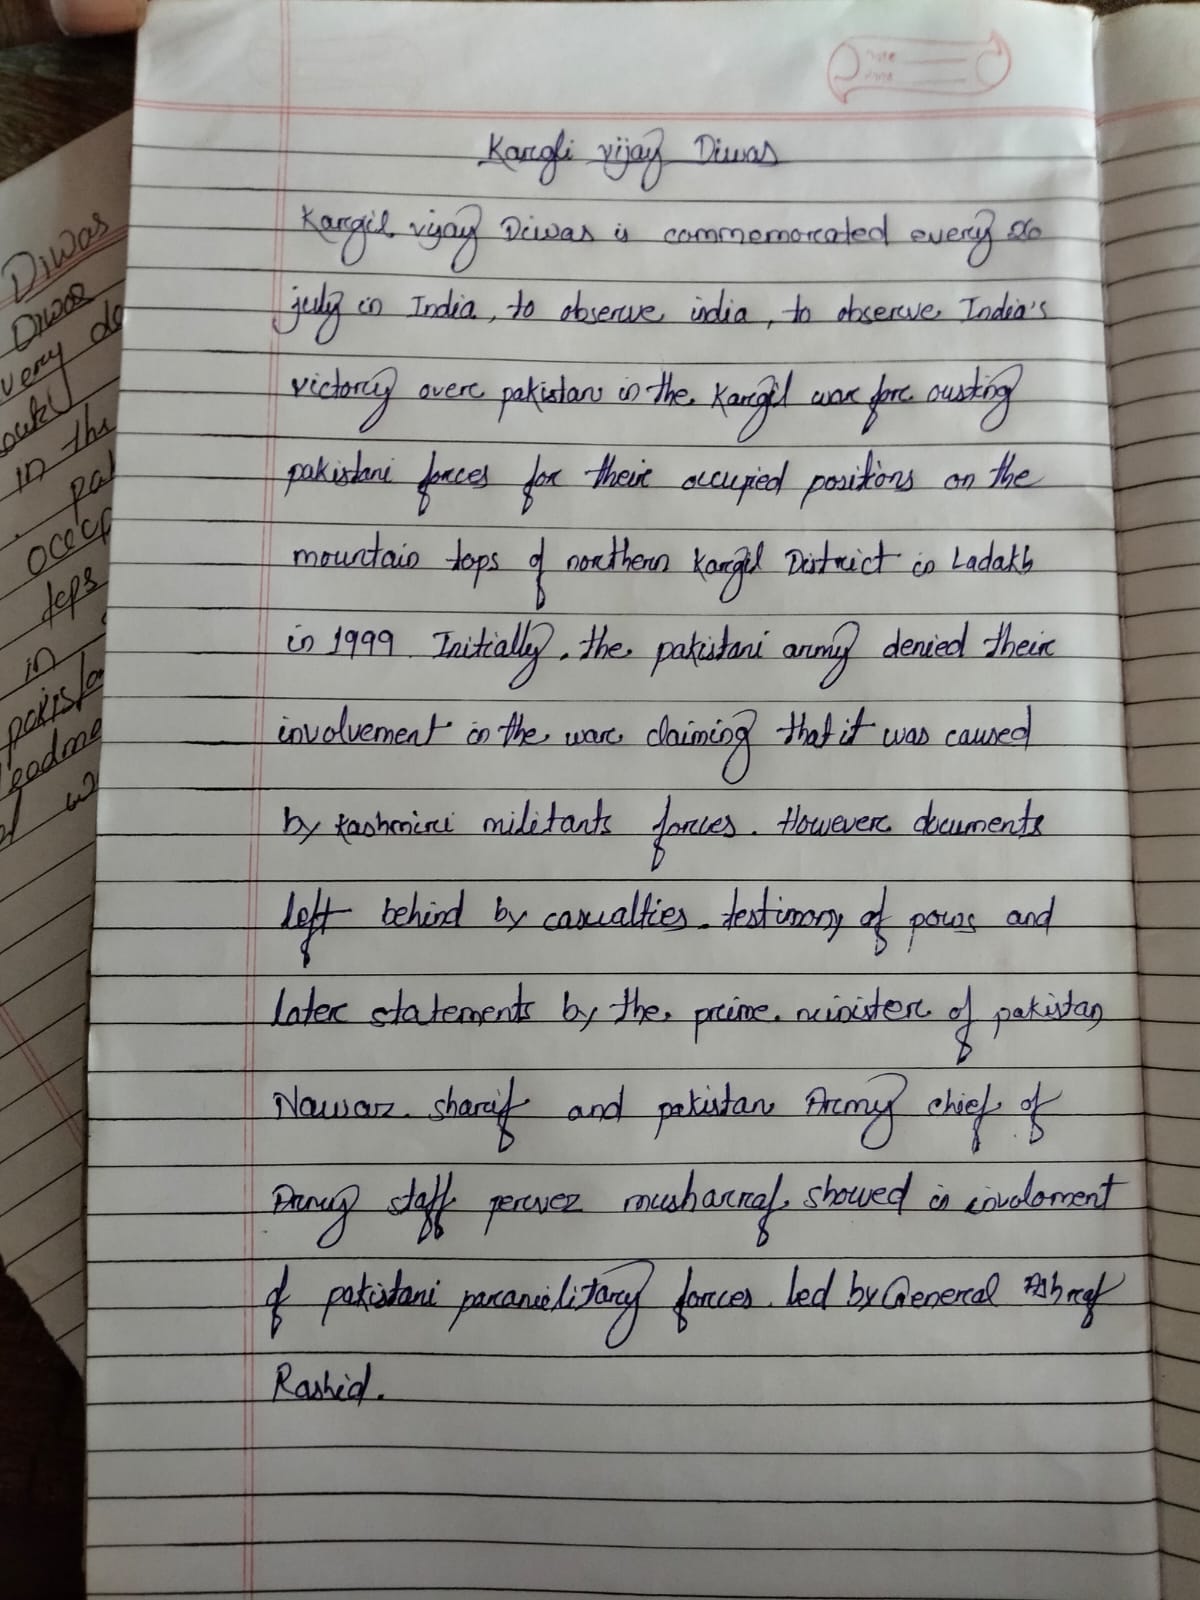 Kargli vijay Diwas
Kargil vijay Diwas is commemorated every 26
july in India, to observe india, to observe India's
victory over pakistan in the Kargil war for ousting
pakistani forces for their occupied positions on the
mountain tops of northern Kargil District in Ladakh
in 1999. Initially, the pakistani army denied their
involvement in the war claiming that it was caused
by kashmiri militants forces. However documents
left behind by casualties. testimony of pows and
later statements by the prime minister of pakistan
Nawaz sharif and pakistan Army chief of
Army staff pervez musharraf showed in involoment
of pakistani paramilitary forces led by General Ashraf
Rashid.
Diwas
Diwas
very
in the
in